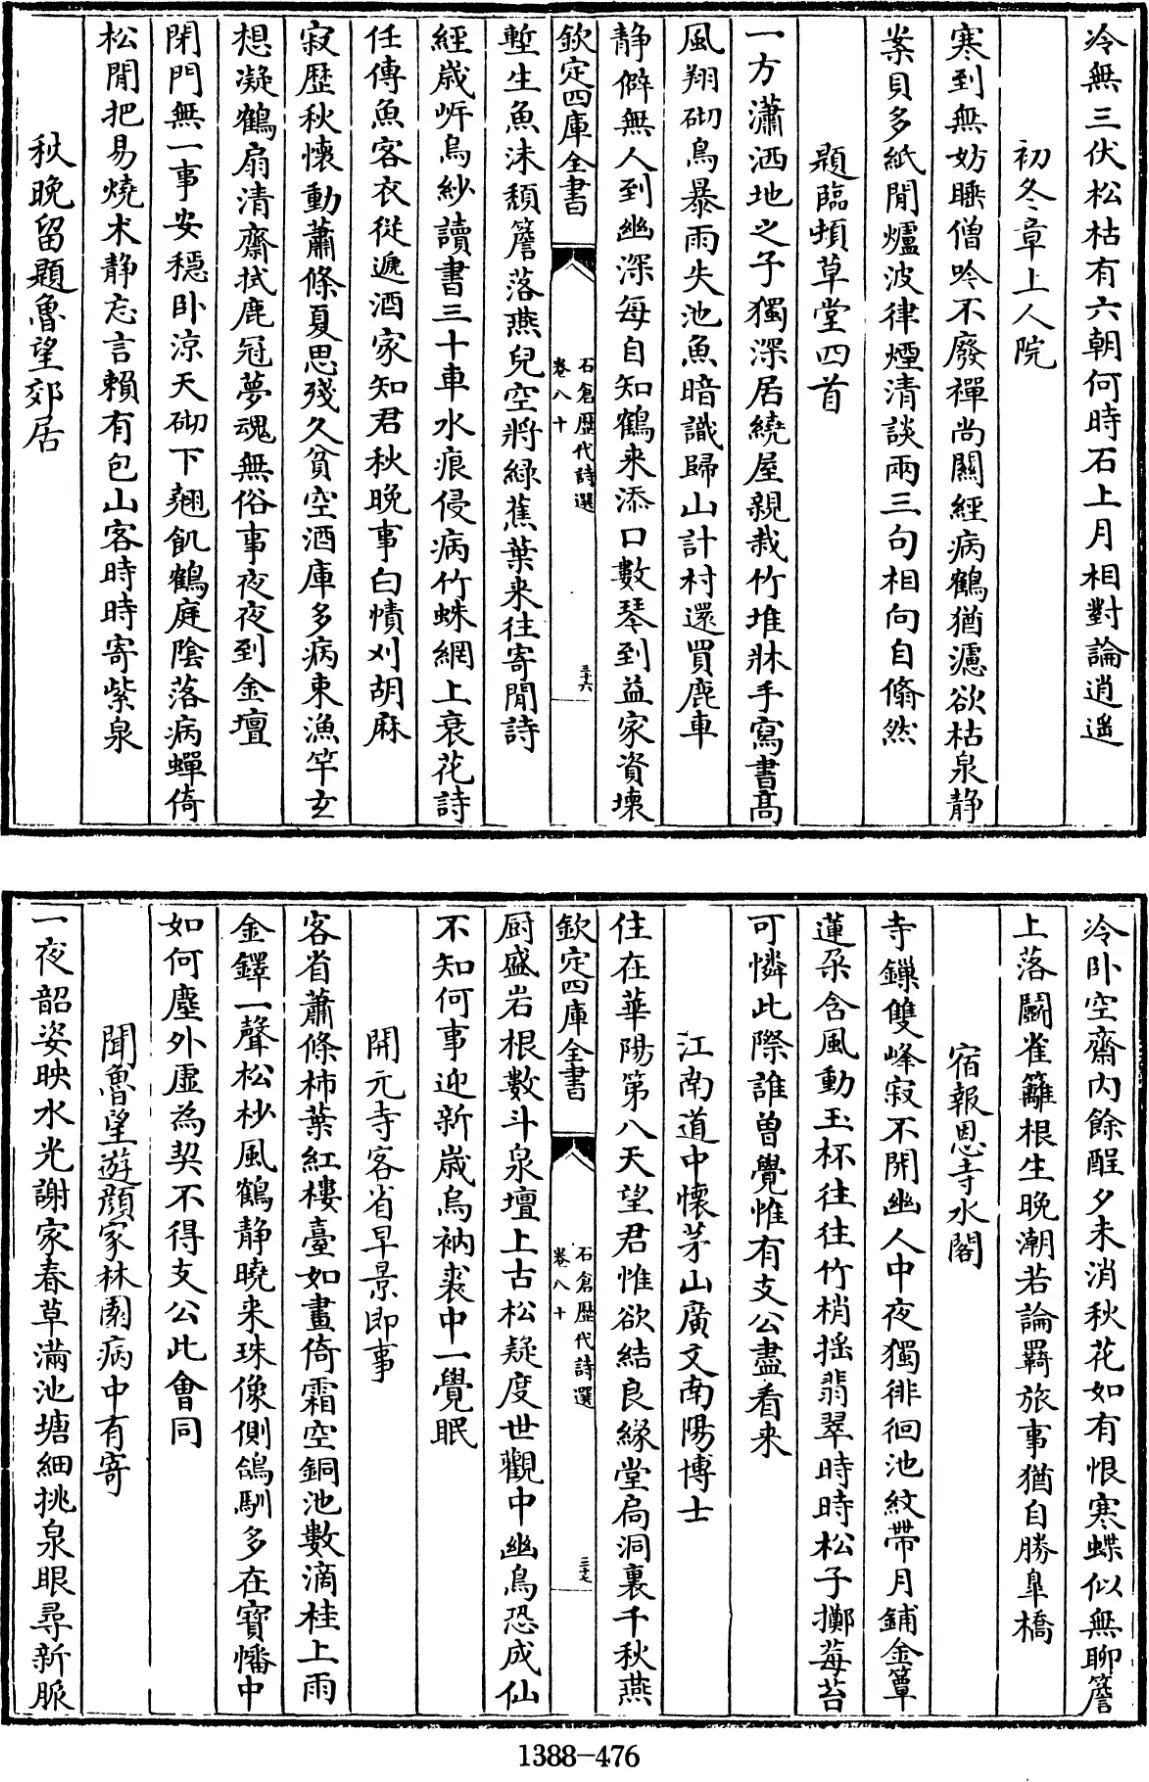 冷無三伏松枯有六朝何時石上月相對論逍遥
初冬章上人院
寒到無妨睡僧吟不廢禪尚關經病鶴猶濾欲枯泉静
案貝多紙閒爐波律煙清談兩三句相向自翛然
題臨頓草堂四首
一方瀟洒地之子獨深居繞屋親栽竹堆牀手寫書髙
風翔砌鳥暴雨失池魚暗識歸山計村還買鹿車
静僻無人到幽深每自知鶴来添口數琴到益家資壊
欽定四庫全書
石倉歴代詩選
卷八十
三十六
塹生魚沫頽簷落燕兒空將緑蕉葉来往寄閒詩
經歳岸烏紗讀書三十車水痕侵病竹蛛網上衰花詩
任傳魚客衣從遞酒家知君秋晚事白幘刈胡麻
寂歴秋懷動蕭條夏思殘久貧空酒庫多病束漁竿玄
想凝鶴扇清齋拭鹿冠夢魂無俗事夜夜到金壇
閉門無一事安穏卧涼天砌下翹飢鶴庭陰落病蟬倚
松閒把易燒术静忘言賴有包山客時時寄紫泉
秋晚留題魯望郊居
冷卧空齋内餘酲夕未消秋花如有恨寒蝶似無聊簷
上落鬭雀籬根生晚潮若論羇旅事猶自勝臯橋
宿報恩寺水閣
寺鏁雙峰寂不開幽人中夜獨徘徊池紋帶月鋪金簟
蓮朶含風動玉杯往往竹梢揺翡翠時時松子擲莓苔
可憐此際誰曽覺惟有支公盡看来
江南道中懷茅山廣文南陽博士
住在華陽第八天望君惟欲結良縁堂扃洞裏千秋燕
欽定四庫全書
石倉歴代詩選
卷八十
三十七
厨盛岩根數斗泉壇上古松疑度世觀中幽鳥恐成仙
不知何事迎新歳烏衲裘中一覺眠
開元寺客省早景即事
客省蕭條柿葉紅樓臺如畫倚霜空銅池數滴桂上雨
金鐸一聲松杪風鶴静曉来珠像側鴿馴多在寳幡中
如何塵外虛為契不得支公此會同
聞魯望遊顔家林園病中有寄
一夜韶姿映水光謝家春草滿池塘細挑泉眼尋新脈
1388-476